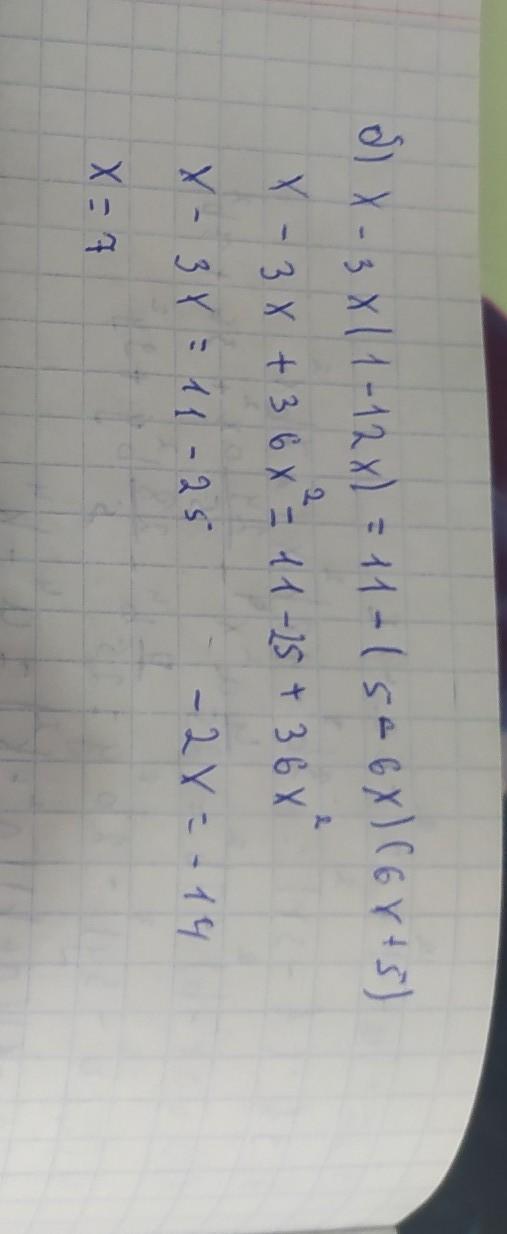 б) x - 3x(1-12x) = 11 - (5 - 6x)(6x+5)
x - 3x + 36x² = 11 - 25 + 36x²
x - 3x = 11 - 25 - 2x = - 14
x = 7